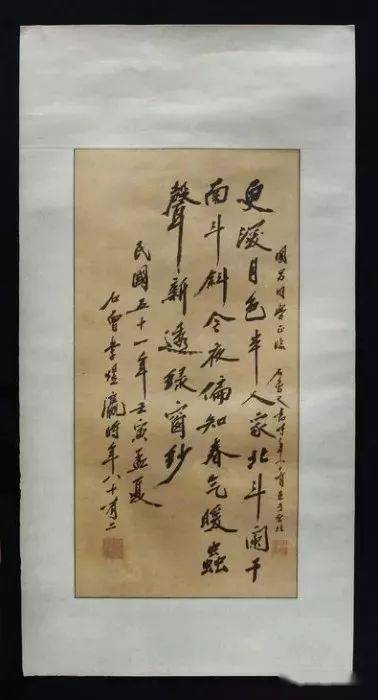 同學正 石曾又書時年八十有
更深月色半人家北斗闌干
南斗斜今夜偏知春氣暖蟲
聲新透綠窗紗
民國五十一年壬寅孟夏
石曾李煜瀛時年八十有二